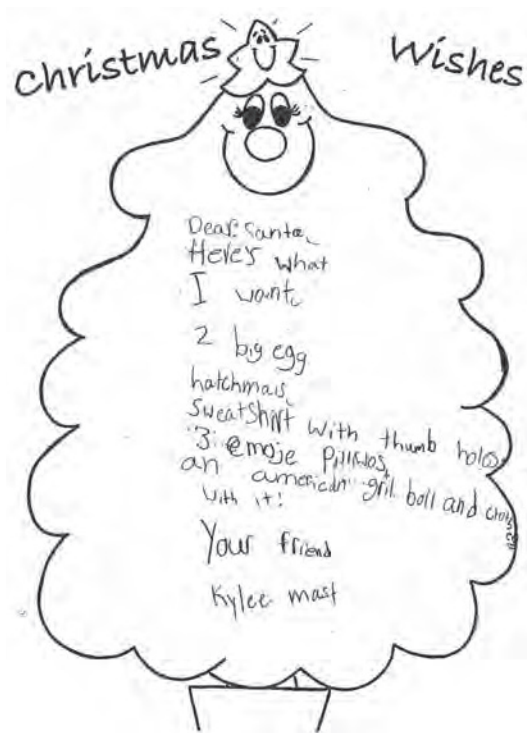 Christmas Wishes
Dear Santa,
Here's what
I want,
2 big egg
hatchmais,
Sweatshirt with thumb holes
3 emoje pillwos,
an american gril boll and
with it!
Your friend
Kylee mast